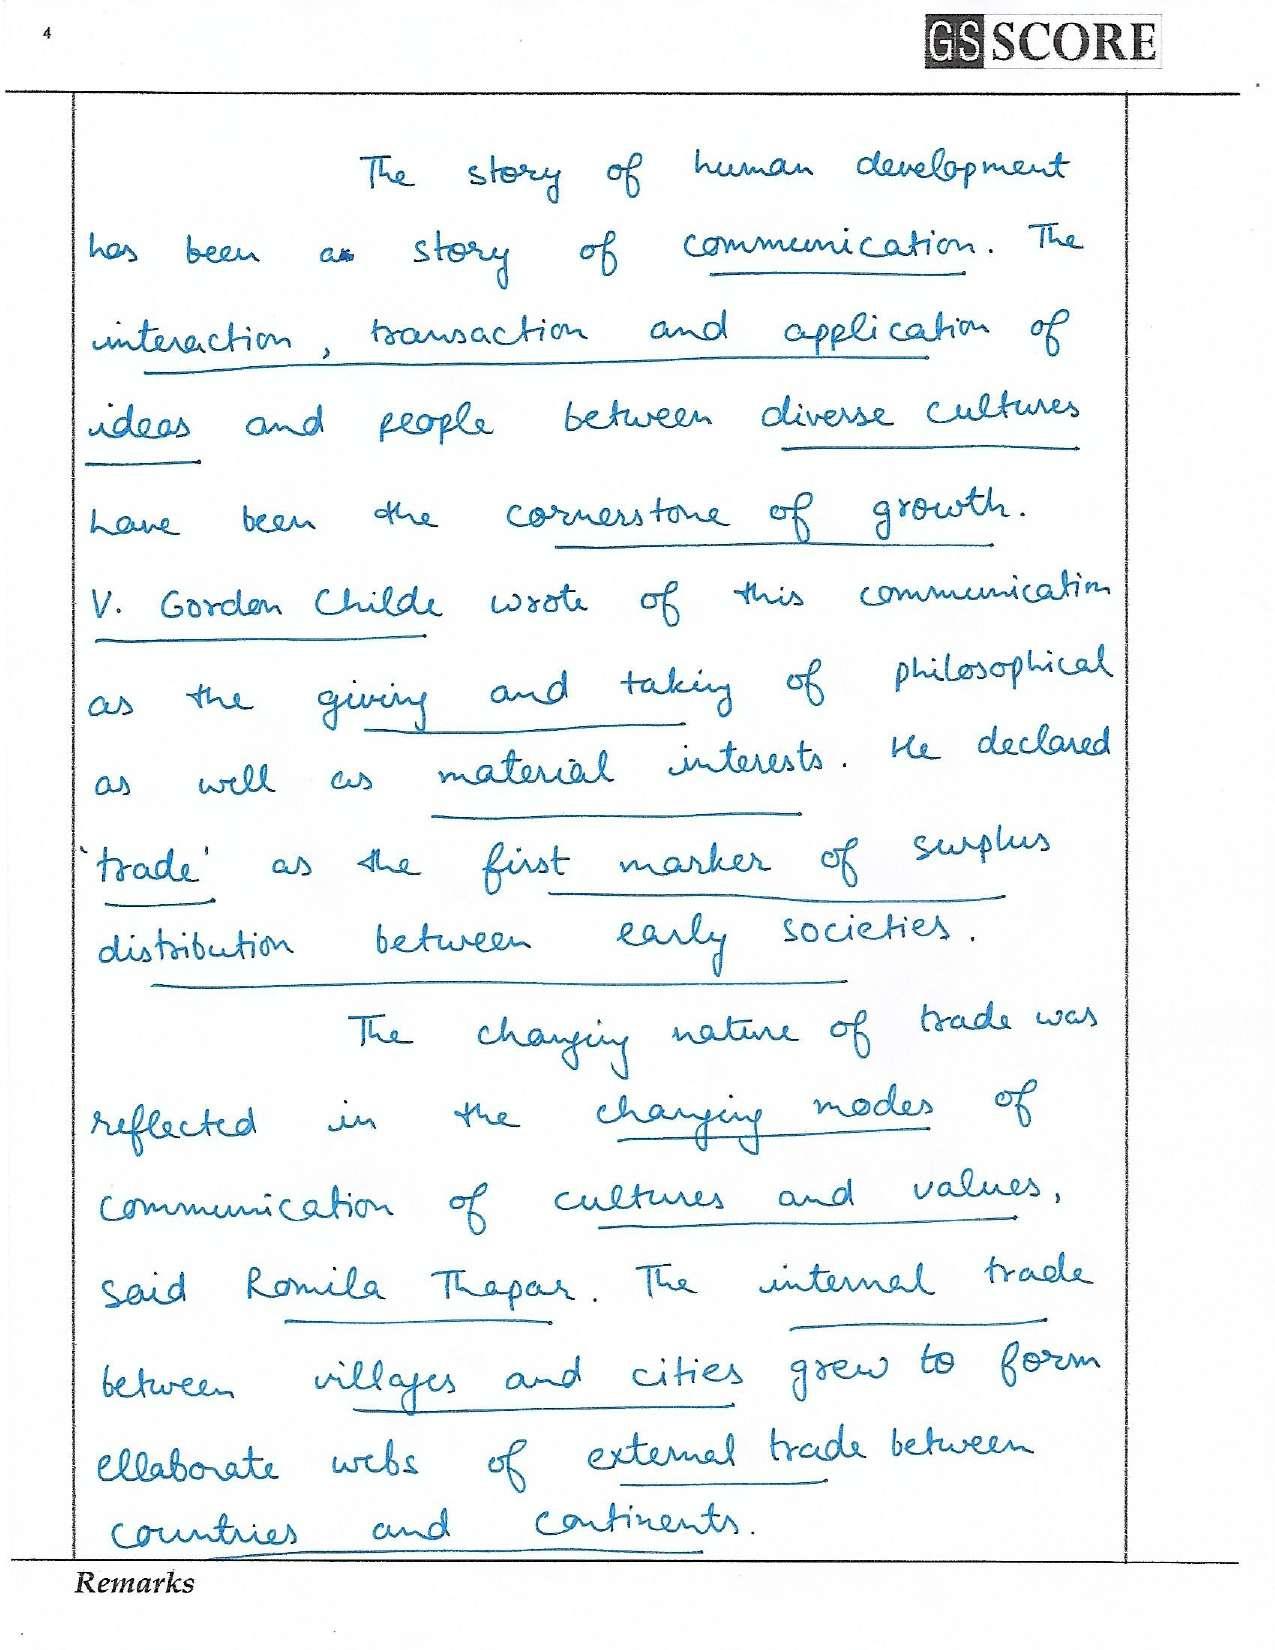 4
GS SCORE
The story of human development
has been a story of communication. The
interaction, transaction and application of
ideas and people between diverse cultures
have been the cornerstone of growth.
V. Gordon Childe wrote of this communication
as the giving and taking of philosophical
as well as material interests. He declared
'trade' as the first marker of surplus
distribution between early societies.
The changing nature of trade was
reflected in the changing modes of
communication of cultures and values,
said Romila Thapar. The internal trade
between villages and cities grew to form
ellaborate webs of external trade between
countries and continents.
Remarks